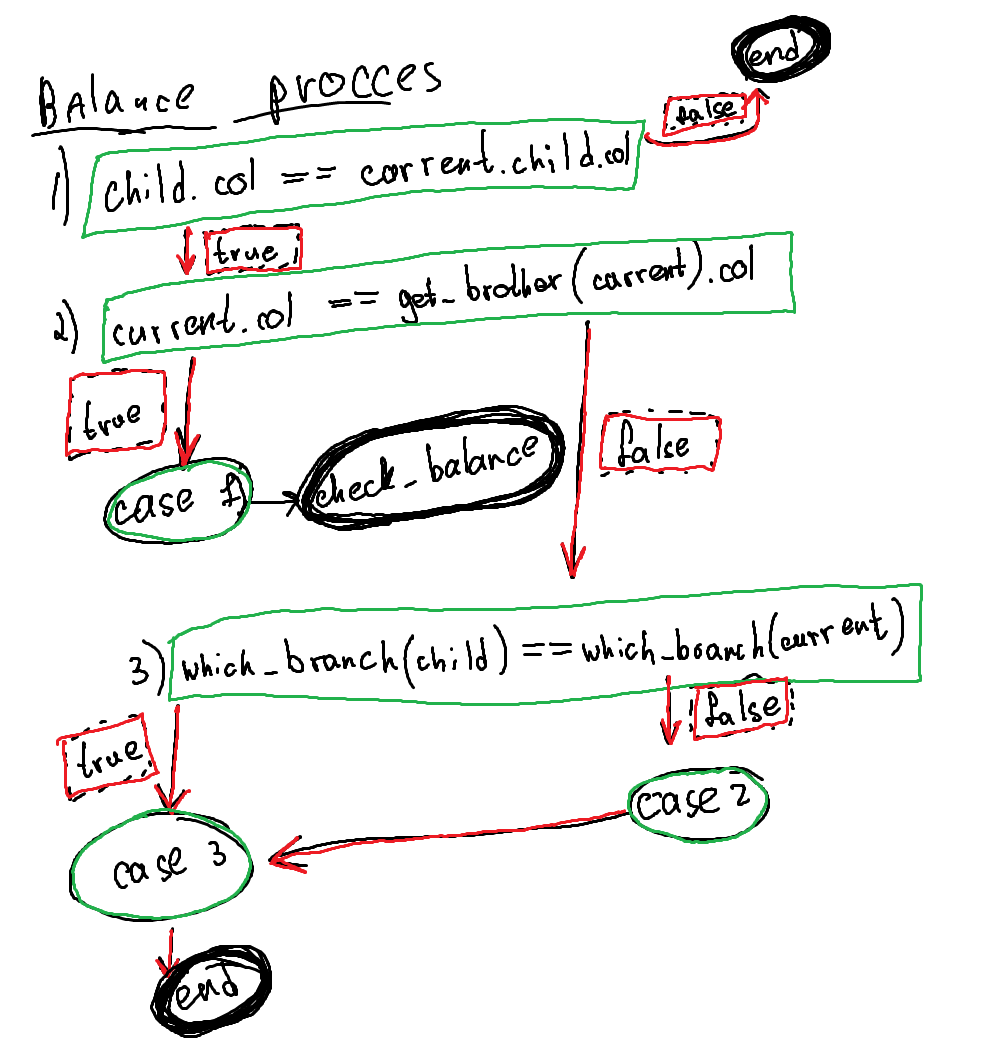 end
Balance procces
false
1) child.col == current.child.col
true
2) current.col == get_brother(current).col
true
false
case 1
check_balance
3) which_branch(child) == which_branch(current)
true
false
case 2
case 3
end